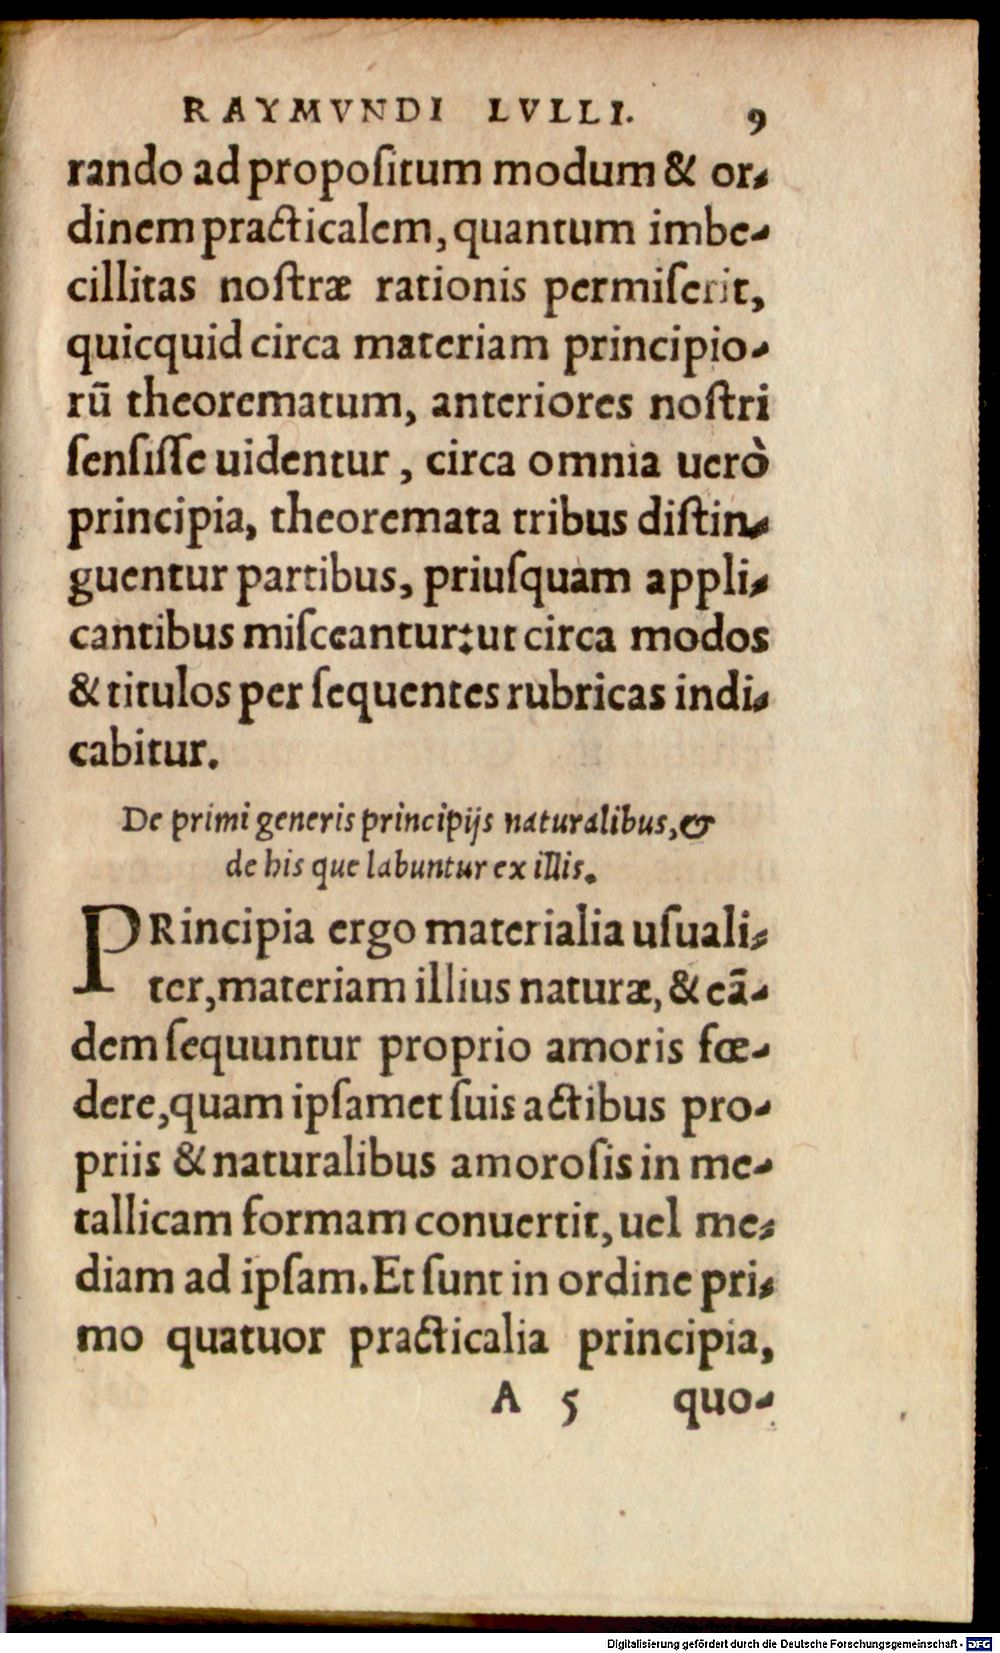 RAYMVNDI LVLLI. 9
rando ad propoſitum modum & or-
dinem practicalem, quantum imbe-
cillitas noſtræ rationis permiſerit,
quicquid circa materiam principio-
rū theorematum, anteriores noſtri
ſenſiſſe uidentur, circa omnia uerò
principia, theoremata tribus diſtin-
guentur partibus, priuſquam appli-
cantibus miſceantur: ut circa modos
& titulos per ſequentes rubricas indi-
cabitur.
De primi generis principijs naturalibus, &
de his que labuntur ex illis.
PRincipia ergo materialia uſuali-
ter, materiam illius naturæ, & eā-
dem ſequuntur proprio amoris fœ-
dere, quam ipſamet ſuis actibus pro-
priis & naturalibus amoroſis in me-
tallicam formam conuertit, uel me-
diam ad ipſam. Et ſunt in ordine pri-
mo quatuor practicalia principia,
A 5 quo-
Digitalisierung gefördert durch die Deutsche Forschungsgemeinschaft - DFG